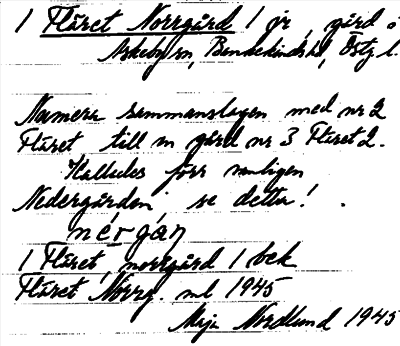 1 Fläret Norrgård 1 jr, gård i
Askeby sn, Bankekinds hd, Östg. l.
Numera sammanslagen med nr 2
Fläret till en gård nr 3 Fläret 2.
Kallades förr vanligen
Nedergården, se detta!
nérgán
1 Fläret, norrgård 1 bek
Fläret Norrg. ml 1945
Maja Nordlund 1945